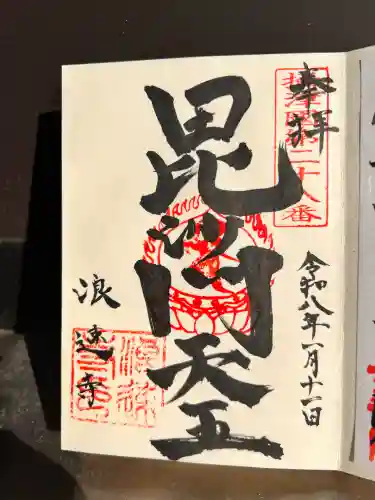 奉拝
摂津国第二十八番
令和八年一月十一日
毘沙門天王
浪速寺